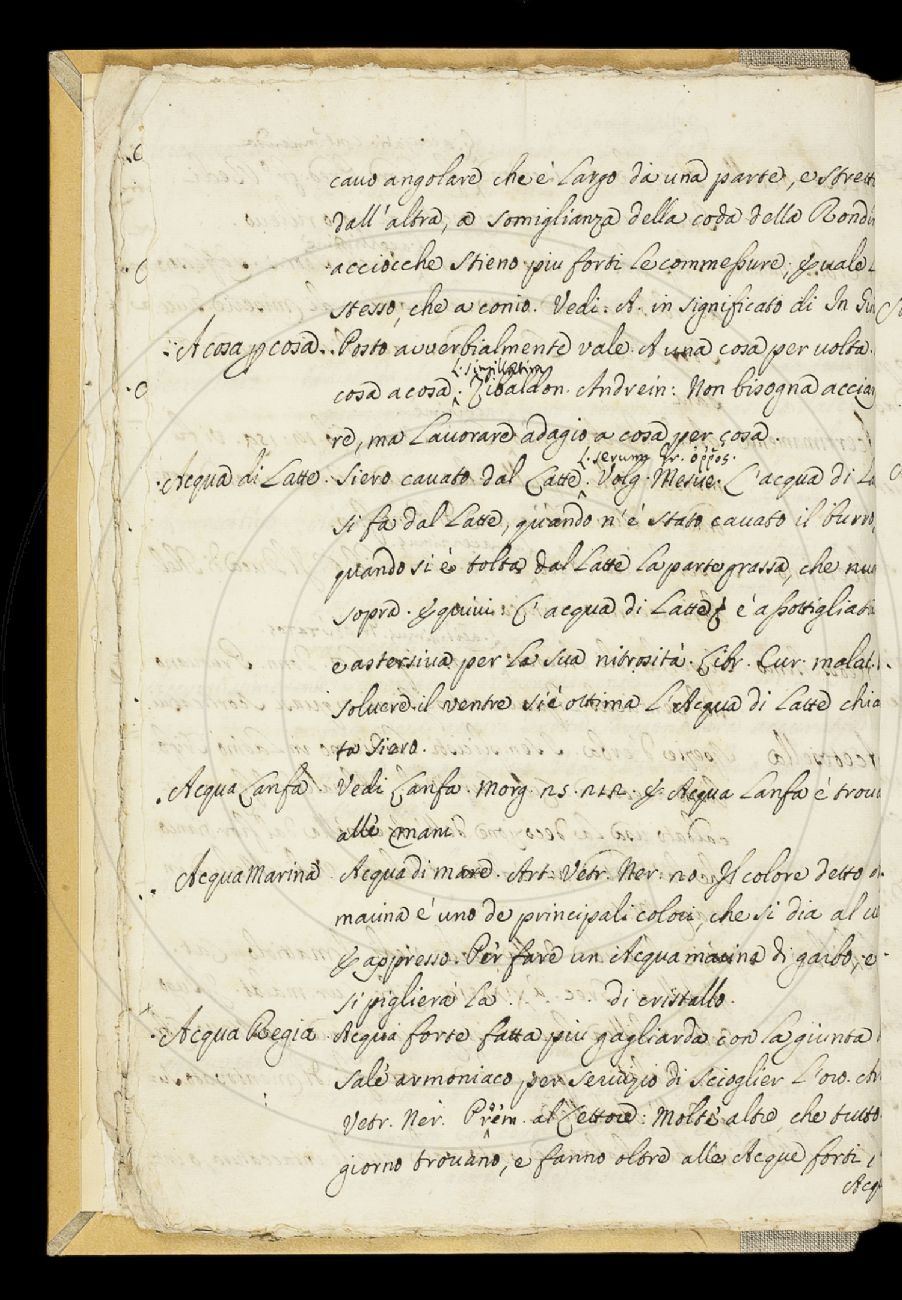 cavo angolare che è largo da una parte, e strett
dall'altra, a somiglianza della coda della Rondi
acciocche stieno piu forti le commessure; & vale l
stesso, che a conio. Vedi. A. in significato di In
A cosa per cosa. Posto avverbialmente vale. A una cosa per volta.
L. singillatim
cosa a cosa. Zibaldon. Andrein: Non bisogna accia
re, ma lavorare adagio a cosa per cosa.
L. serum Gr. òῤῥos.
Acqua di Latte. Siero cavato dal Latte. Volg. Mesue. L'acqua di La
si fa dal Latte, quando n'è stato cavato il burro,
quando si è tolta dal Latte la parte grassa, che nuo
sopra. & quivi: L'acqua di Latte è assottigliati
e astersiva per la sua nitrosità. Libr. Cur. malat.
solvere il ventre si è ottima l'Acqua di Latte chia
ta siero.
Acqua Lanfa. Vedi Lanfa. Morg. & Acqua Lanfa è trov
alle mani
Acqua Marina Acqua di mare. Art. Vetr. Ner. Il colore detto
marina è uno de principali colori, che si dia al
& appresso. Per fare un Acqua marina di garbo, e
si piglierà la . . . di cristallo.
Acqua Regia Acqua forte fatta piu gagliarda con la giunta
sale armoniaco, per servizio di scioglier l'oro. Ar
Vetr. Ner. Proem. al Lettore: Molte altre, che tutto
giorno trovano, e fanno oltre alle Acque forti,
Acq